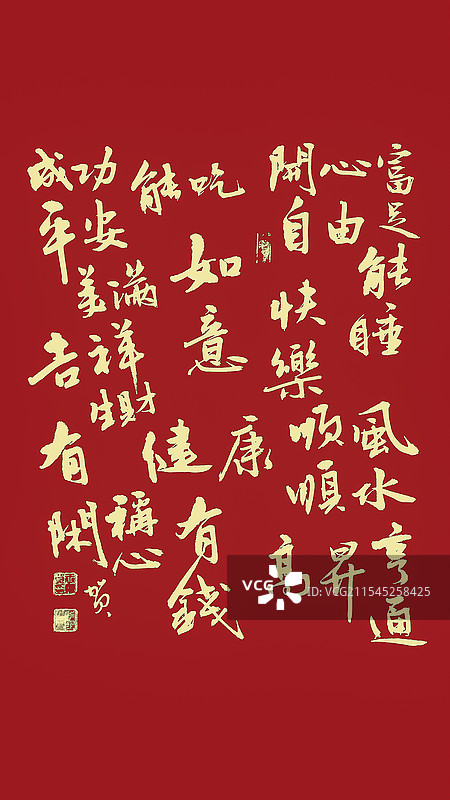 富足
開心
自由
能睡
快樂
風水
順順
亨通
高昇
能吃
如意
健康
有錢
成功
平安
美滿
吉祥
生財
有閑
稱心
VCG
ID:VCG211545258425